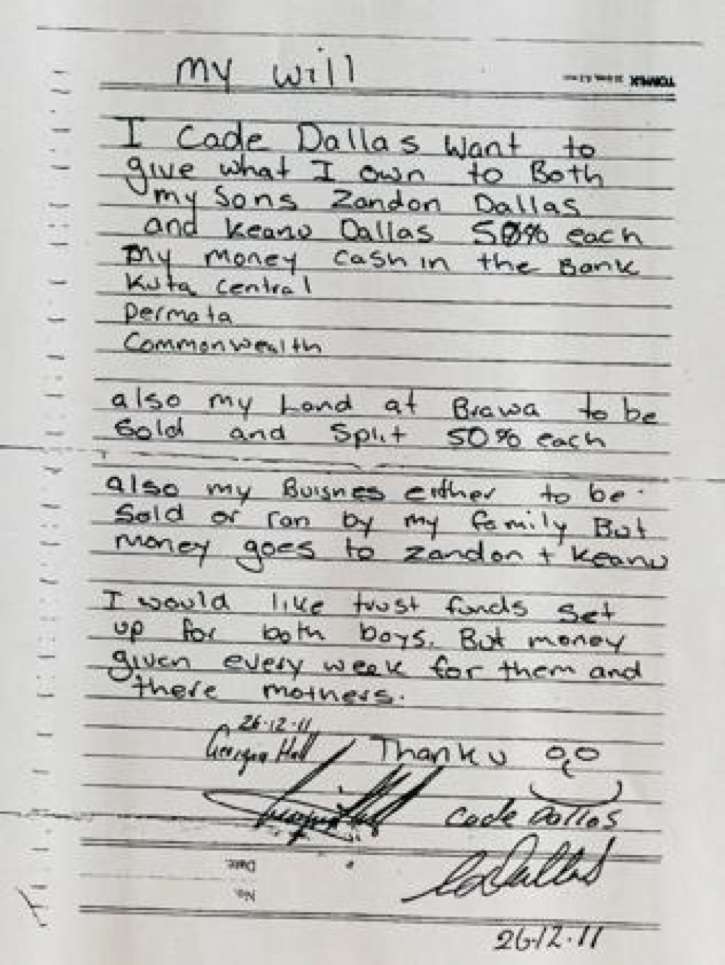 my will
I Cade Dallas want to
give what I own to Both
my Sons Zandon Dallas
and Keano Dallas 50% each
my money cash in the Bank
Kuta Central
Permata
Commonwealth
also my Land at Brawa to be
Sold and Split 50% each
also my Buisnes either to be
Sold or ran by my family But
money goes to Zandon + Keano
I would like trust funds set
up for both boys. But money
given every week for them and
there mothers.
26-12-11
Georgia Hall
Thank u
Cade Dallas
CDallas
26-12-11
Date:
No.